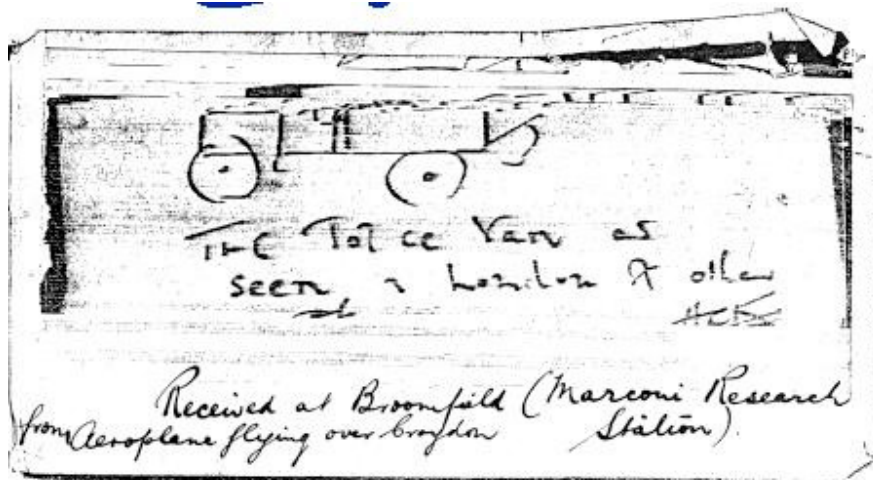 THE Police Van as
seen in London & other
Received at Broomfield (Marconi Research
from Aeroplane flying over Croydon Station).